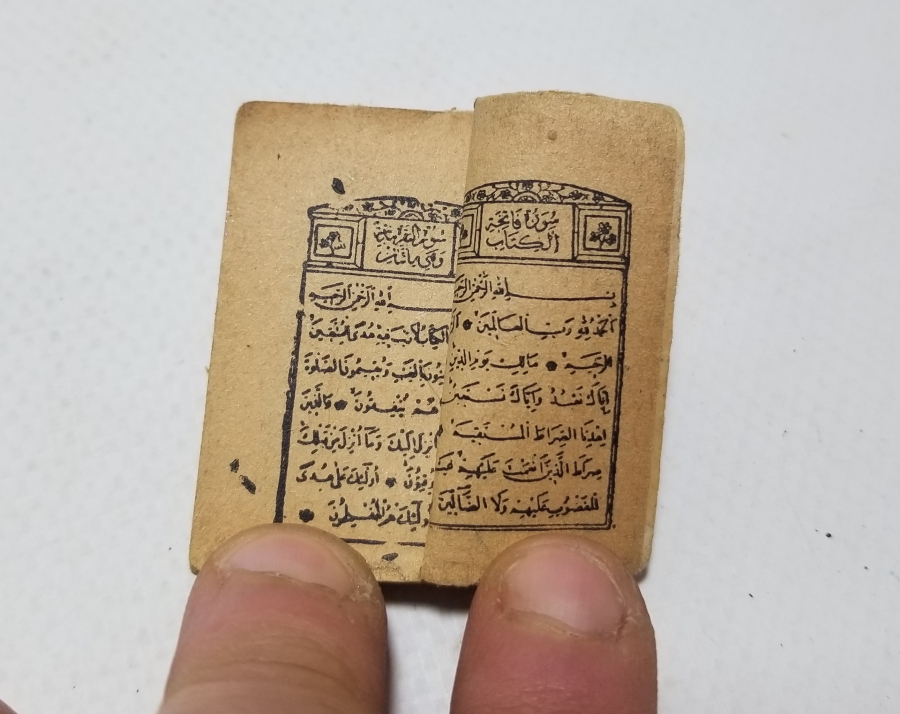 سُورَةُ فَاتِحَةِ
الْكِتَابِ
بِسْمِ اللهِ الرَّحْمٰنِ الرَّحِيمِ
اَلْحَمْدُ لِلّٰهِ رَبِّ الْعَالَمِينَ * الرَّ
حْمٰنِ الرَّحِيمِ * مَالِكِ يَوْمِ الدِّينِ
اِيَّاكَ نَعْبُدُ وَاِيَّاكَ نَسْتَعِينُ
اِهْدِنَا الصِّرَاطَ الْمُسْتَقِيمَ
صِرَاطَ الَّذِينَ اَنْعَمْتَ عَلَيْهِمْ غَيْرِ
الْمَغْضُوبِ عَلَيْهِمْ وَلَا الضَّالِّينَ
سُورَةُ الْبَقَرَةِ
وَهِيَ
اللهِ الرَّحْمٰنِ الرَّحِيمِ
الْكِتَابُ لَا رَيْبَ فِيهِ هُدًى لِلْمُتَّقِينَ
بِالْغَيْبِ وَيُقِيمُونَ الصَّلٰوةَ
هُمْ يُنْفِقُونَ * وَالَّذِينَ
اُنْزِلَ اِلَيْكَ وَمَا اُنْزِلَ مِنْ قَبْلِكَ
يُوقِنُونَ * اُولٰئِكَ عَلٰى هُدًى
وَاُولٰئِكَ هُمُ الْمُفْلِحُونَ *